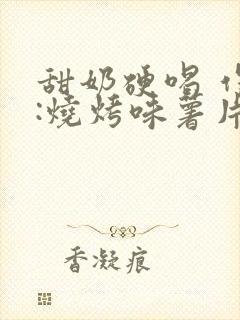 甜奶硬唱
:燒烤味薯片
香凝痕